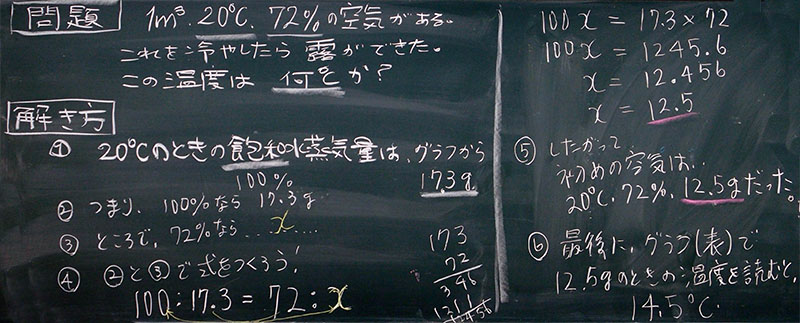 問題
1m³、20℃、72%の空気がある。
これを冷やしたら露ができた。
この温度は何℃か?
解き方
① 20℃のときの飽和水蒸気量は、グラフから
100%
17.3g
② つまり、100%なら 17.3g
③ ところで、72%なら x
④ ②と③で式をつくろう!
100:17.3=72:x
173
72
346
1211
12456
100x=17.3×72
100x=1245.6
x=12.456
x=12.5
⑤ したがって、
初めの空気は、
20℃、72%、12.5gだった。
⑥ 最後に、グラフ(表)で
12.5gのときの温度を読むと、
14.5℃.